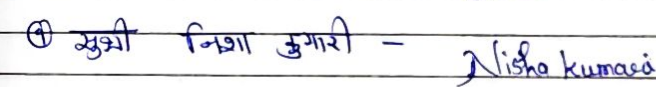 ④ सुश्री निशा कुमारी - Nisha Kumari